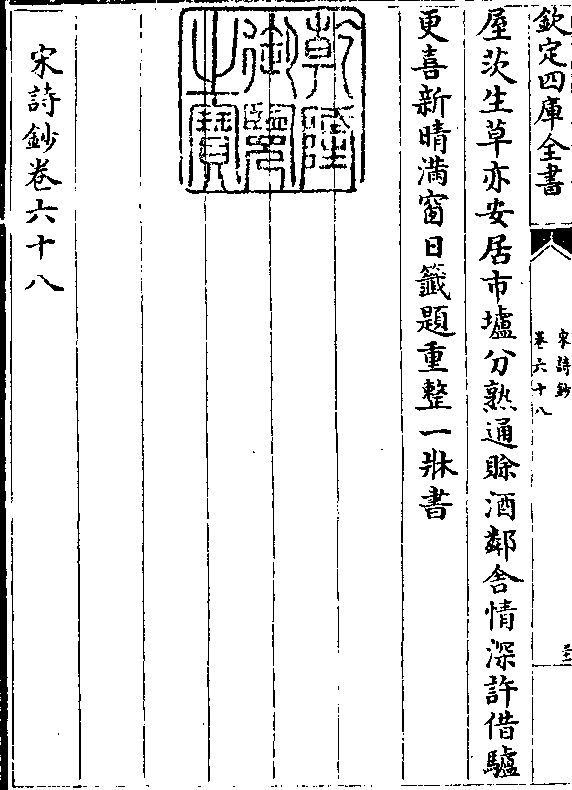 欽定四庫全書
宋詩鈔
卷六十八
屋茨生草亦安居市壚分熟通賖酒鄰舎情深許借驢
更喜新晴滿窗日籤題重整一牀書
乾隆御覽之寶
宋詩鈔卷六十八